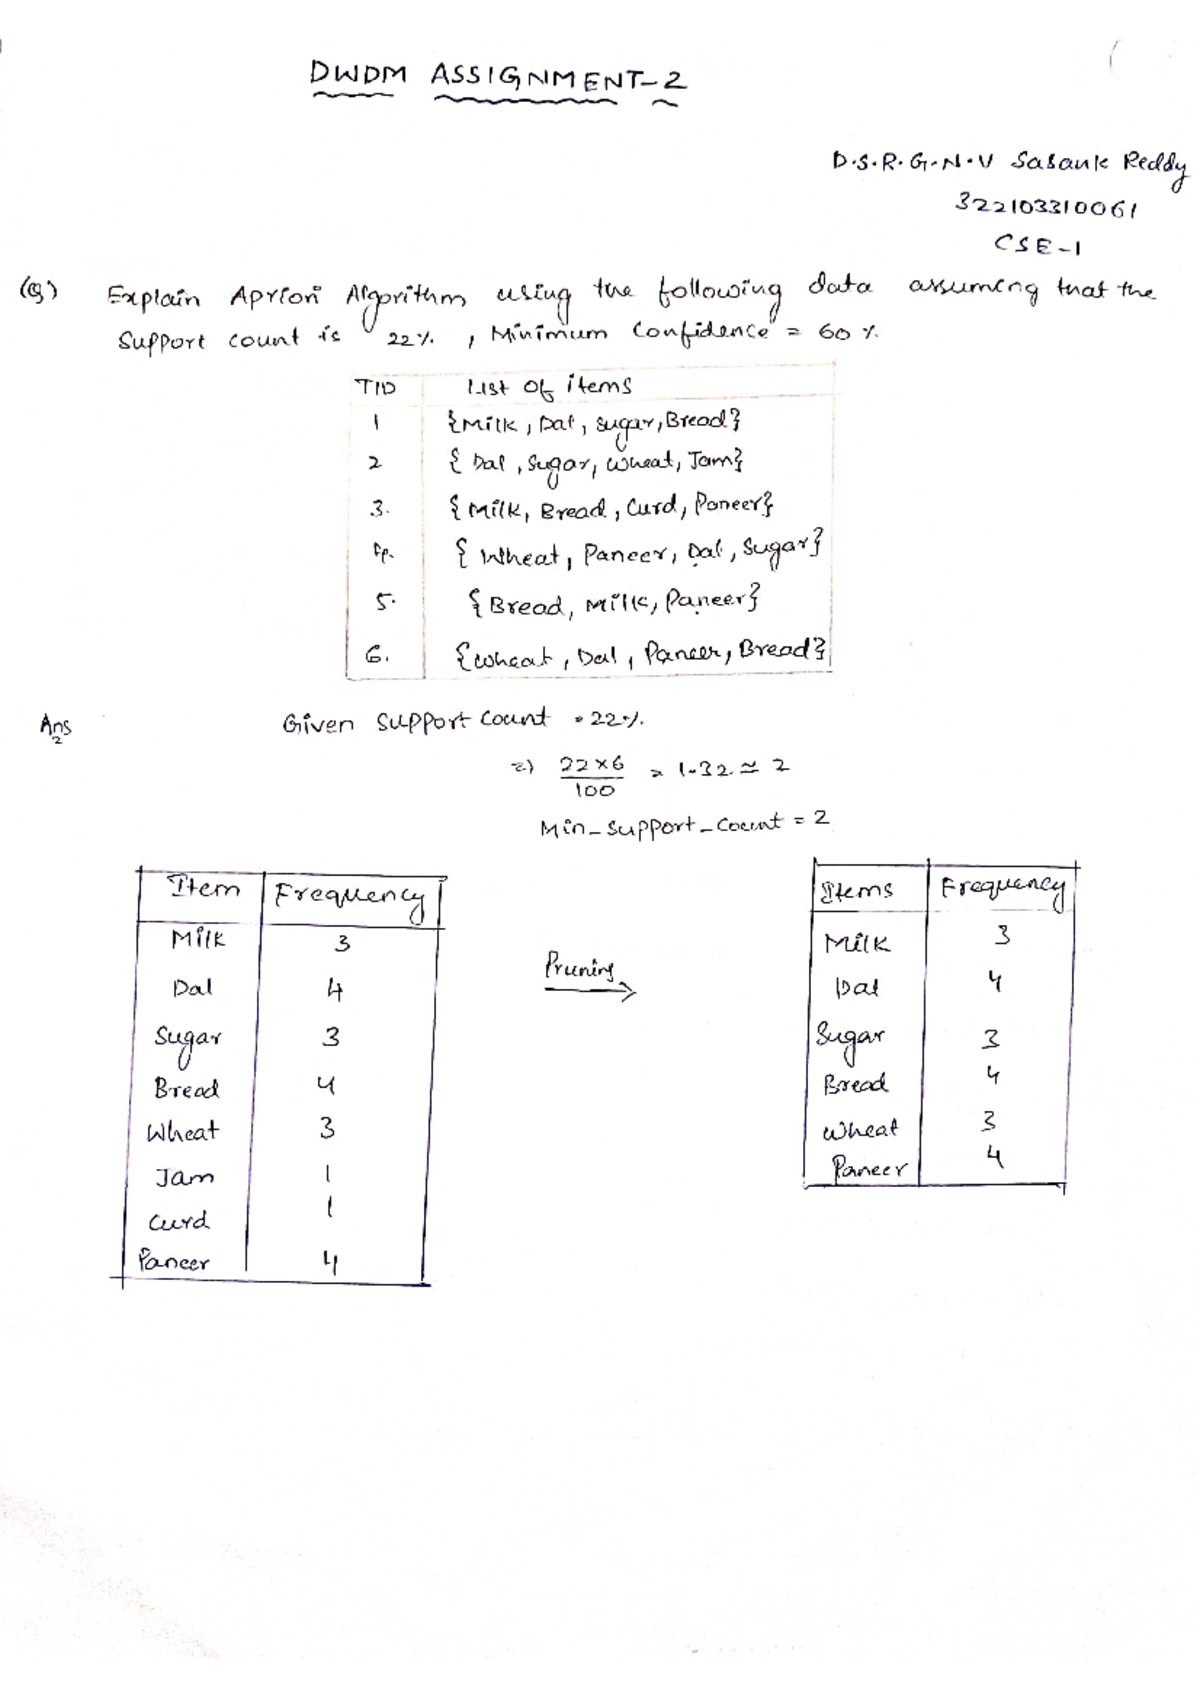 DWDM ASSIGNMENT-2
D.S.R.G.N.V Sasank Reddy
322103310061
CSE-1
(Q) Explain Apriori Algorithm using the following data assuming that the
support count is 22%, Minimum Confidence = 60%.
TID List of items
1 {Milk, Dal, Sugar, Bread}
2 {Dal, Sugar, Wheat, Jam}
3. {Milk, Bread, Curd, Paneer}
4. {Wheat, Paneer, Dal, Sugar}
5. {Bread, Milk, Paneer}
6. {Wheat, Dal, Paneer, Bread}
Ans Given support count = 22%.
=) 22×6/100 = 1.32 ≃ 2
Min_support_count = 2
Item Frequency
Milk 3
Dal 4
Sugar 3
Bread 4
Wheat 3
Jam 1
Curd 1
Paneer 4
Pruning
Items Frequency
Milk 3
Dal 4
Sugar 3
Bread 4
Wheat 3
Paneer 4